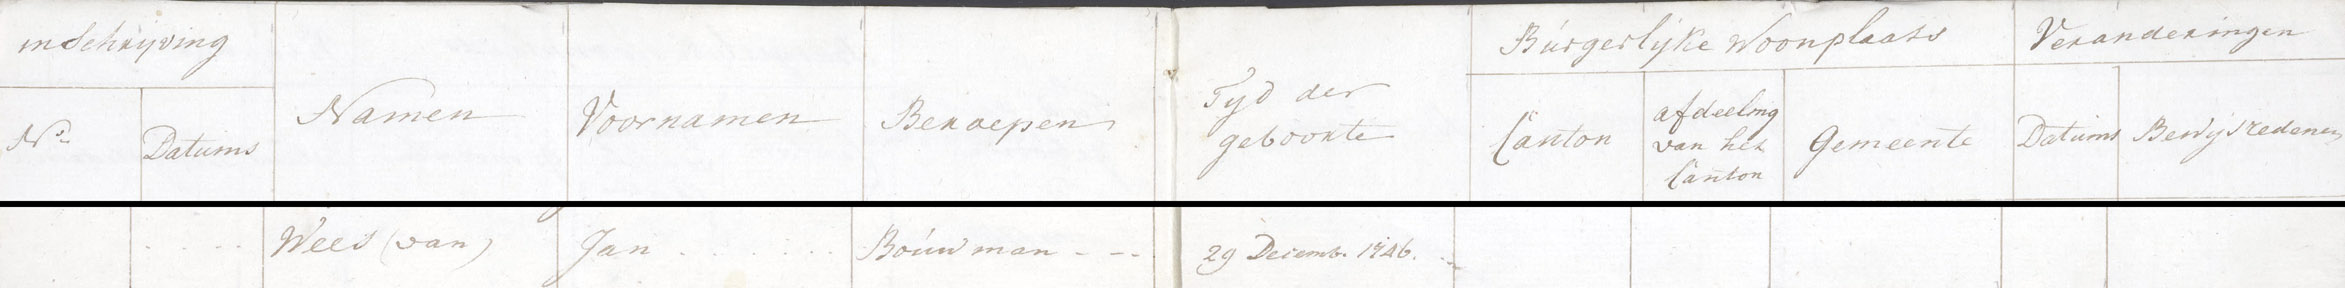 inschryving
Burgerlyke Woonplaats
Veranderingen
No.
Datums
Namen
Voornamen
Beroepen
Tyd der
geboorte
Canton
afdeeling
van het
Canton
Gemeente
Datums
Bewysredenen
Wees (van) Jan Bouwman 29 Decemb. 1746.